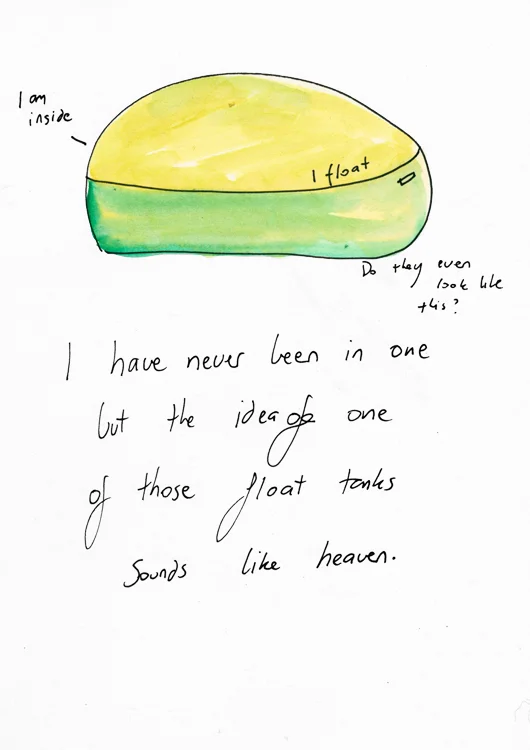 I am
inside
I float
Do they even
look like
this?
I have never been in one
but the idea of one
of those float tanks
Sounds like heaven.